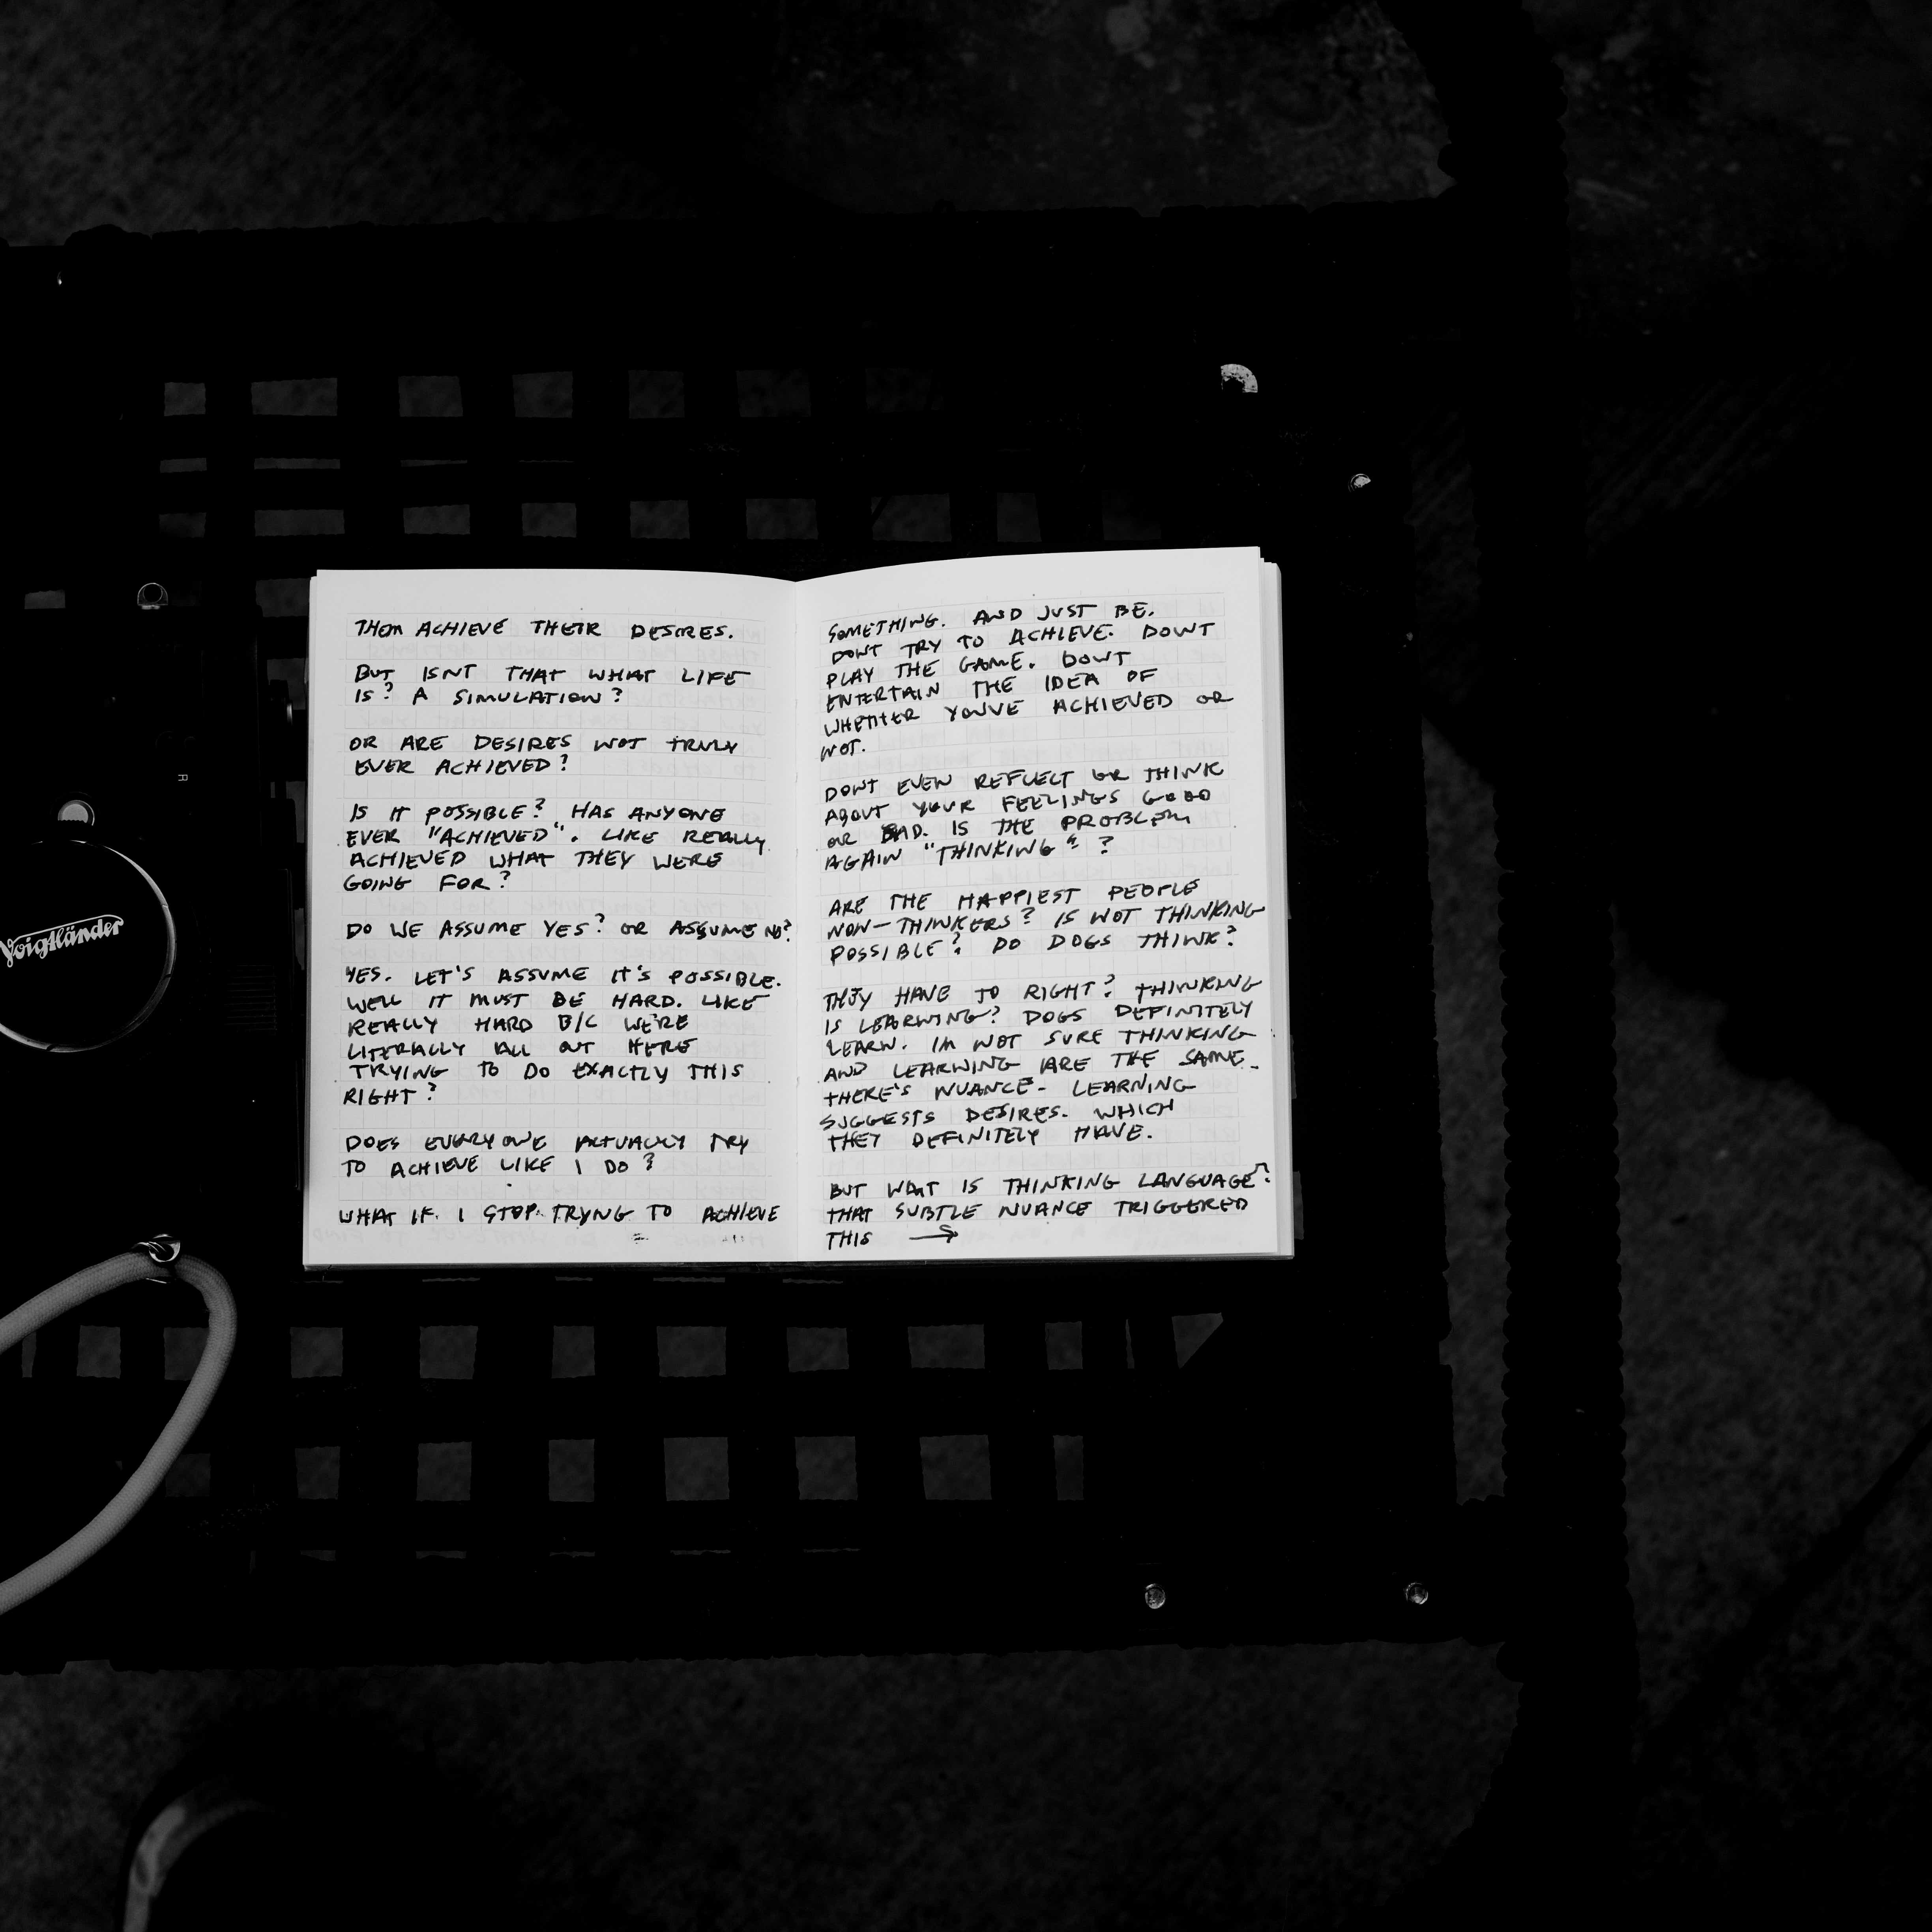 THEM ACHIEVE THEIR DESIRES.
BUT ISNT THAT WHAT LIFE
IS? A SIMULATION?
OR ARE DESIRES NOT TRULY
EVER ACHIEVED?
IS IT POSSIBLE? HAS ANYONE
EVER "ACHIEVED". LIKE REALLY
ACHIEVED WHAT THEY WERE
GOING FOR?
DO WE ASSUME YES? OR ASSUME NO?
YES. LET'S ASSUME IT'S POSSIBLE.
WELL IT MUST BE HARD. LIKE
REALLY HARD B/C WE'RE
LITERALLY ALL OUT HERE
TRYING TO DO EXACTLY THIS
RIGHT?
DOES EVERYONE ACTUALLY TRY
TO ACHIEVE LIKE I DO?
WHAT IF I STOP TRYNG TO ACHIEVE
SOMETHING. AND JUST BE.
DONT TRY TO ACHIEVE. DONT
PLAY THE GAME. DONT
ENTERTAIN THE IDEA OF
WHETHER YOU'VE ACHIEVED OR
NOT.
DONT EVEN REFLECT OR THINK
ABOUT YOUR FEELINGS GOOD
OR BAD. IS THE PROBLEM
AGAIN "THINKING"?
ARE THE HAPPIEST PEOPLE
NON-THINKERS? IS NOT THINKING
POSSIBLE? DO DOGS THINK?
THEY HAVE TO RIGHT? THINKING
IS LEARNING? DOGS DEFINITELY
LEARN. IM NOT SURE THINKING
AND LEARNING ARE THE SAME.
THERE'S NUANCE- LEARNING
SUGGESTS DESIRES. WHICH
THEY DEFINITELY HAVE.
BUT WHAT IS THINKING LANGUAGE?
THAT SUBTLE NUANCE TRIGGERED
THIS →
Voigtländer